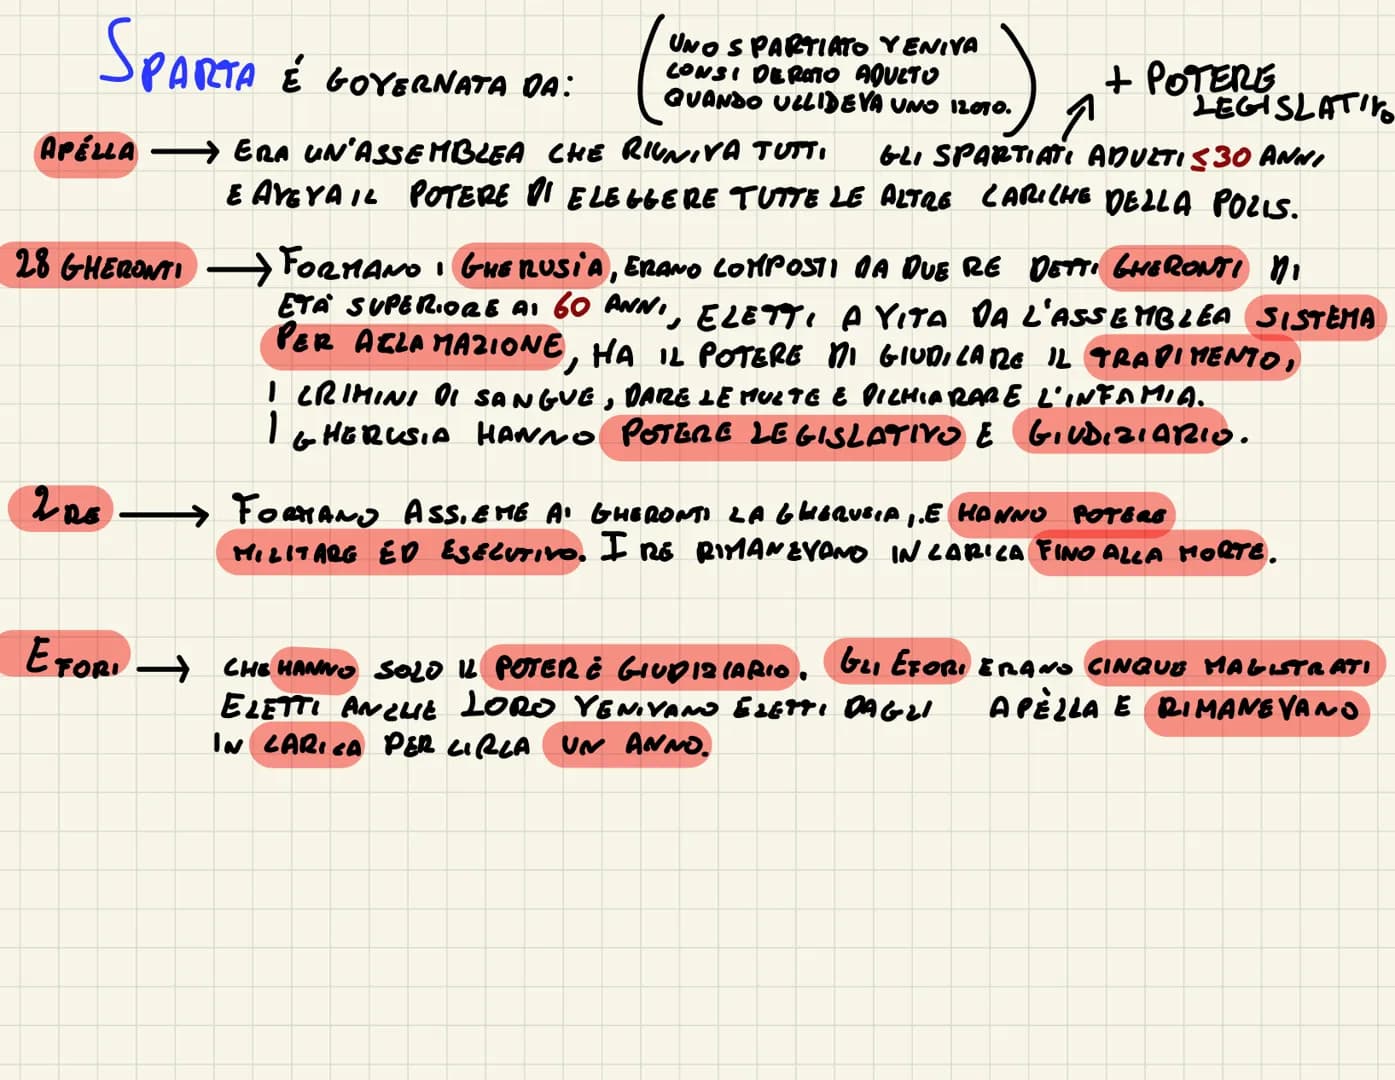 SPARTA É GOVERNATA DA:
(UNO SPARTIATO VENIVA
CONSIDERATO ADULTO
QUANDO UCCIDEVA UNO ILOTO.)
+ POTERE
LEGISLATIVO
APÉLLA → ERA UN'ASSEMBLEA CHE RIUNIVA TUTTI GLI SPARTIATI ADULTI ≤30 ANNI
E AVEVA IL POTERE DI ELEGGERE TUTTE LE ALTRE CARICHE DELLA POLIS.
28 GHERONTI → FORMANO I GHERUSIA, ERANO COMPOSTI DA DUE RE DETTI GHERONTI DI
ETÀ SUPERIORE AI 60 ANNI, ELETTI A VITA DA L'ASSEMBLEA SISTEMA
PER ACCLAMAZIONE, HA IL POTERE DI GIUDICARE IL TRADIMENTO,
I CRIMINI DI SANGUE, DARE LE MULTE E DICHIARARE L'INFAMIA.
I GHERUSIA HANNO POTERE LEGISLATIVO E GIUDIZIARIO.
2 RE → FORMANO ASSIEME AI GHERONTI LA GHERUSIA, E HANNO POTERE
MILITARE ÉD ESECUTIVO. I RE RIMANEVANO IN CARICA FINO ALLA MORTE.
EFORI → CHE HANNO SOLO IL POTERÈ GIUDIZIARIO. GLI EFORI ERANO CINQUE MAGISTRATI
ELETTI ANCHE LORO VENIVANO ELETTI DAGLI APÈLLA E RIMANEVANO
IN CARICA PER CIRCA UN ANNO.